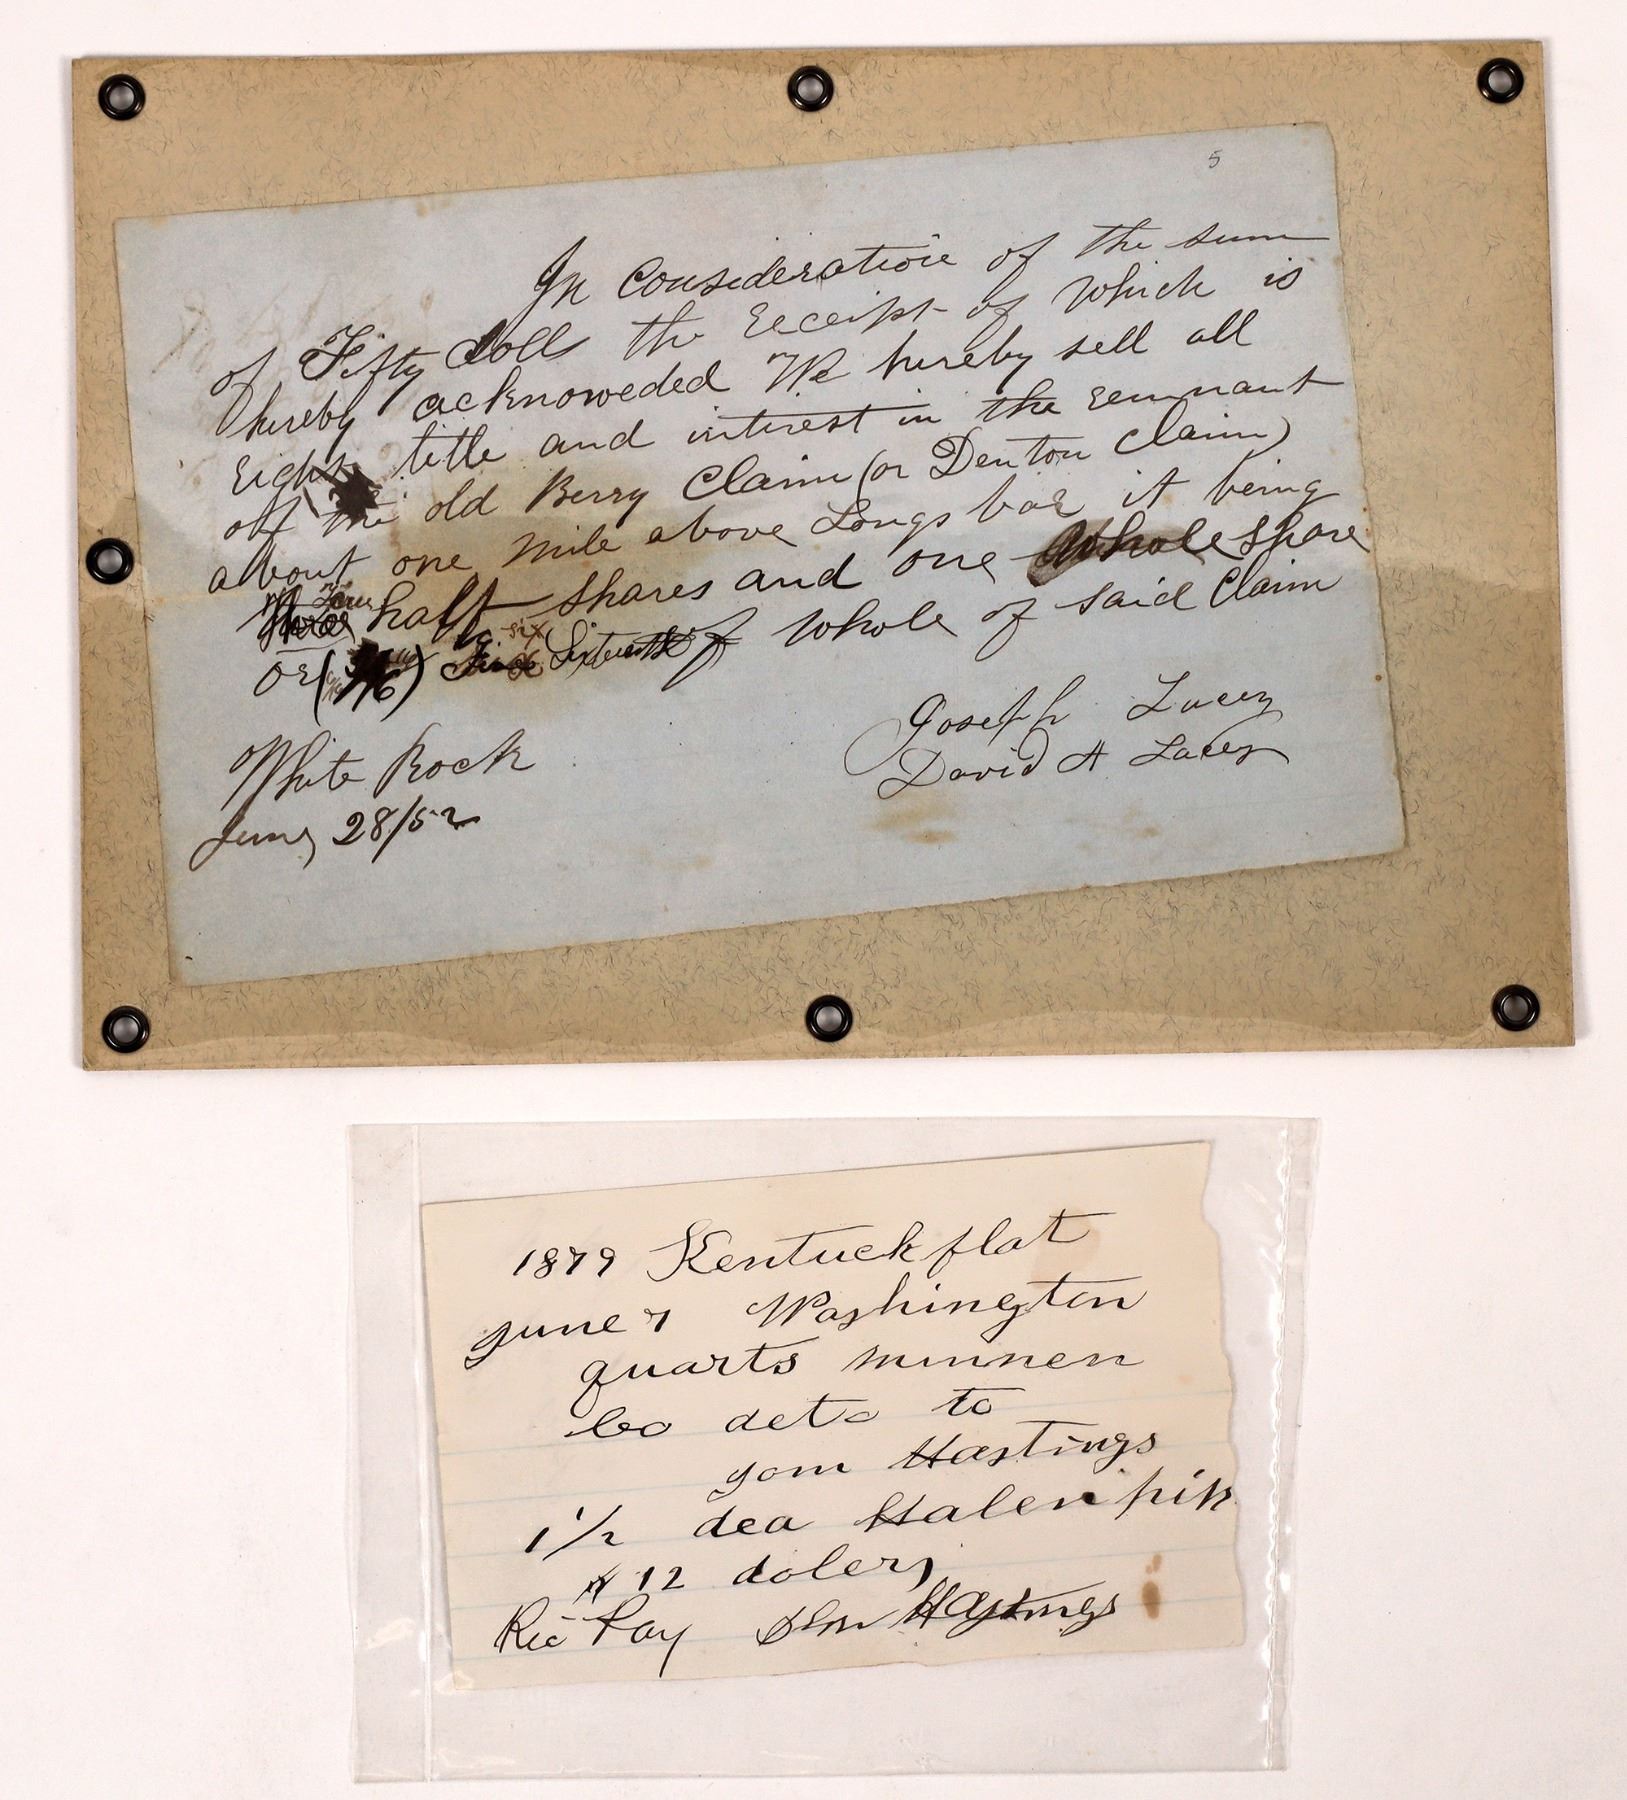 5
In Consideration of the sum
of Fifty dolls the receipt of which is
hereby acknoweded We hereby sell all
right title and interest in the remnant
of the old Berry Claim (or Denton Claim)
about one mile above Longs bar it being
half shares and one whole share
or ( ) six Sixteenths of whole of said Claim
Joseph Lacey
David A Lacey
White Rock
June 28/52
1879 Kentuck flat
June 7 Washington
quarts minnen
Co deto to
Hastings
1 1/2 dea Halen pip
$12 dolers
Rec Pay Hastings